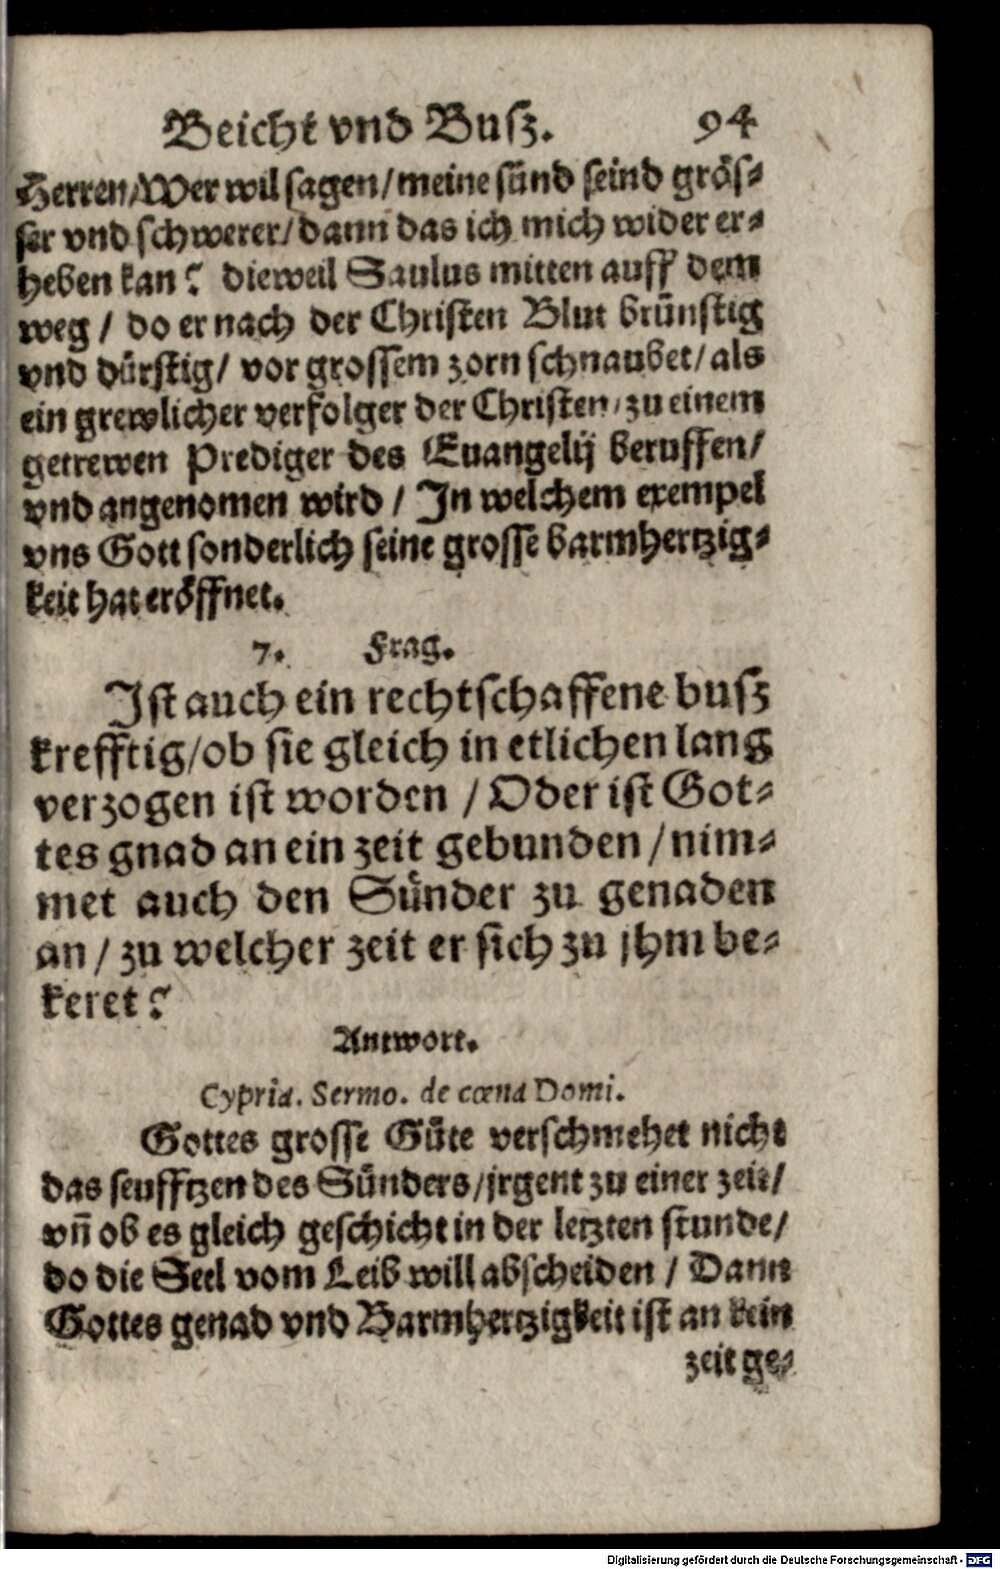 Beicht vnd Busz. 94
Herren/Wer wil sagen/meine sünd seind grös-
ser vnd schwerer/dann das ich mich wider er-
heben kan? dieweil Saulus mitten auff dem
weg / do er nach der Christen Blut brünstig
vnd dürstig/ vor grossem zorn schnaubet/als
ein grewlicher verfolger der Christen/zu einem
getrewen Prediger des Euangelij beruffen/
vnd angenomen wird / Jn welchem exempel
vns Gott sonderlich seine grosse barmhertzig-
keit hat eröffnet.
7. Frag.
Jst auch ein rechtschaffene busz
krefftig/ob sie gleich in etlichen lang
verzogen ist worden / Oder ist Got-
tes gnad an ein zeit gebunden /nim-
met auch den Sünder zu genaden
an / zu welcher zeit er sich zu jhm be-
keret?
Antwort.
Cypria. Sermo. de cœna Domi.
Gottes grosse Güte verschmehet nicht
das seufftzen des Sünders/jrgent zu einer zeit/
vñ ob es gleich geschicht in der letzten stunde/
do die Seel vom Leib will abscheiden / Dann
Gottes genad vnd Barmhertzigkeit ist an kein
zeit ge-
Digitalisierung gefördert durch die Deutsche Forschungsgemeinschaft - DFG